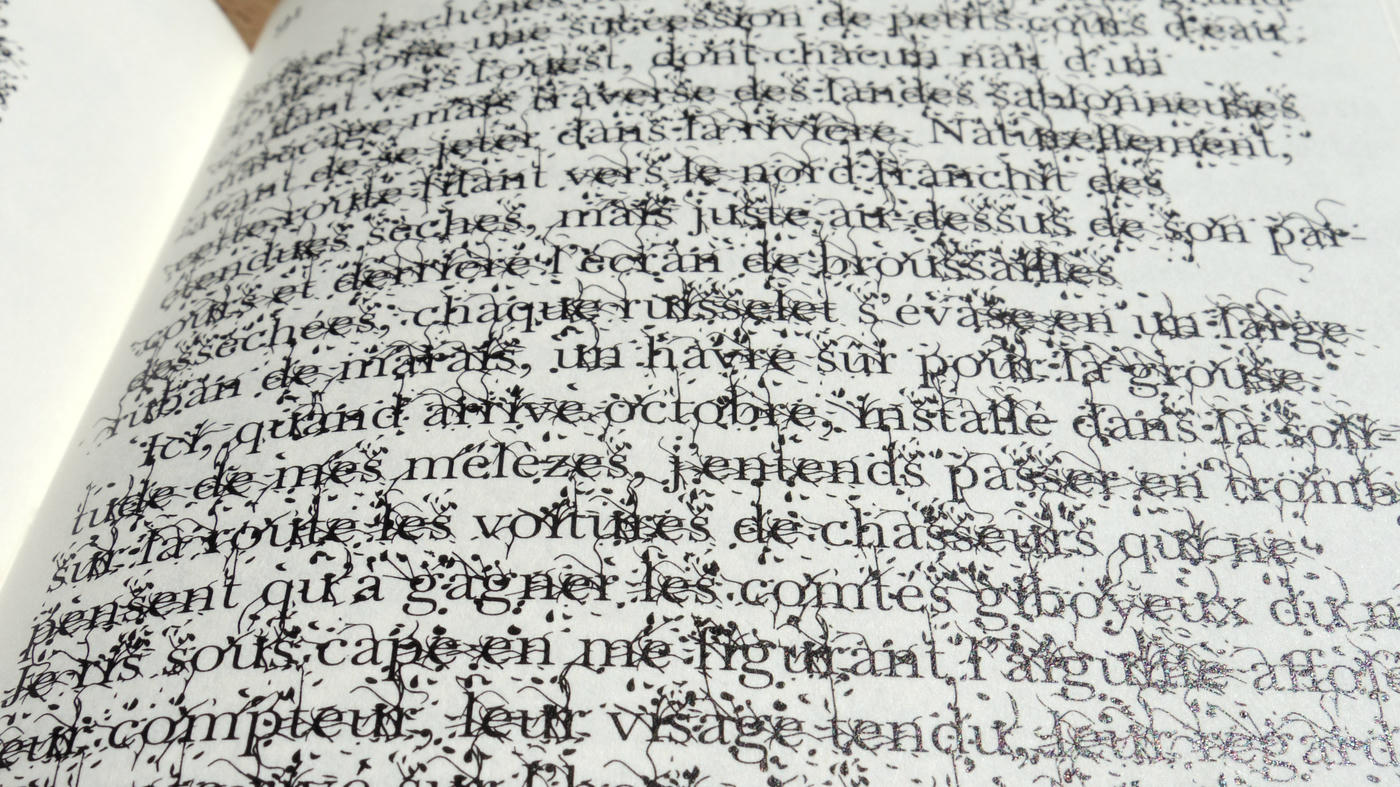 de chênes
une succession de petits cours d'eau
vers l'ouest, dont chacun naît d'un
marécage mais traverse des landes sablonneuses
avant de se jeter dans la rivière. Naturellement,
cette route filant vers le nord franchit des
étendues sèches, mais juste au-dessus de son par-
cours et derrière l'écran de broussailles
desséchées, chaque ruisselet s'évase en un large
ruban de marais, un havre sûr pour la grouse.
Ici, quand arrive octobre, installé dans la soli-
tude de mes mélèzes, j'entends passer en tromb
sur la route les voitures de chasseurs qui ne
pensent qu'à gagner les comtés giboyeux du n
Je ris sous cape en me figurant l'aiguille affol
eur compteur, leur visage tendu, leur regard
sur l'ho